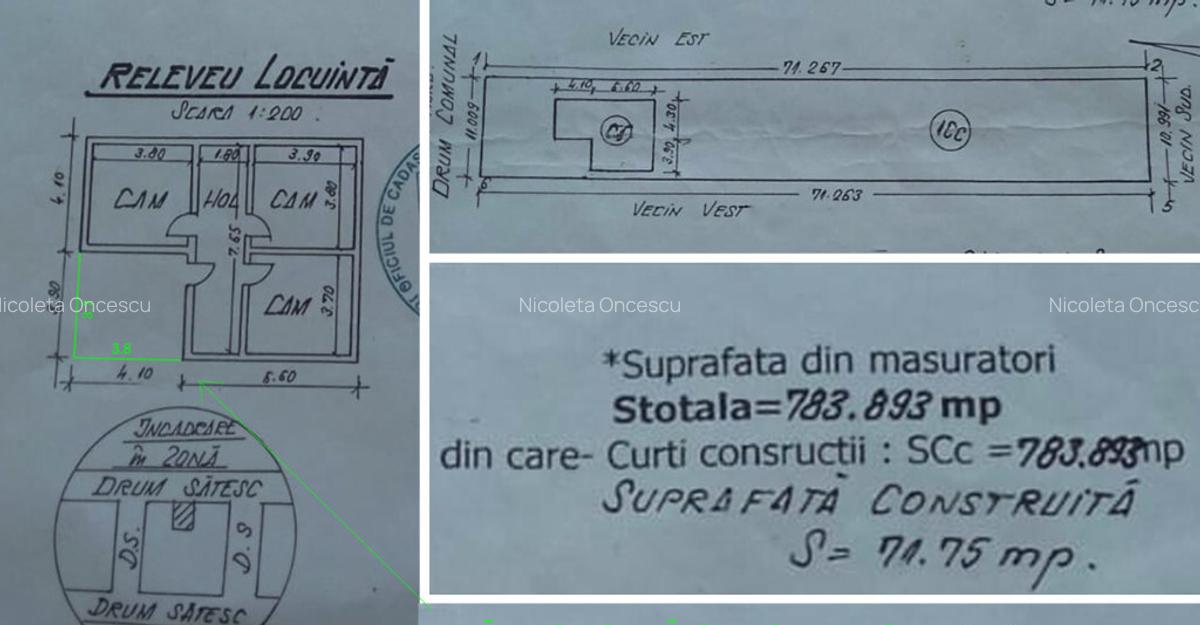 RELEVEU LOCUINTĂ
SCARA 1:200.
3.80
1.80
3.90
4.10
CAM
HOL
CAM
3.80
7.65
CAM
3.70
3.8
4.10
6.60
OFICIUL DE CADAS
ÎNCADRARE
în ZONĂ
DRUM SĂTESC
D.S.
D.S
DRUM SĂTESC
VECIN EST
1
71.267
2
DRUM COMUNAL
11.009
4.10
6.60
4.30
3.90
1Cc
10.991
VECIN SUD.
6
71.263
5
VECIN VEST
Nicoleta Oncescu
Nicoleta Oncescu
Nicoleta Oncesc
*Suprafata din masuratori
Stotala=783.893 mp
din care- Curti consructii : SCc =783.893mp
SUPRAFATĂ CONSTRUITĂ
S= 71.75 mp.